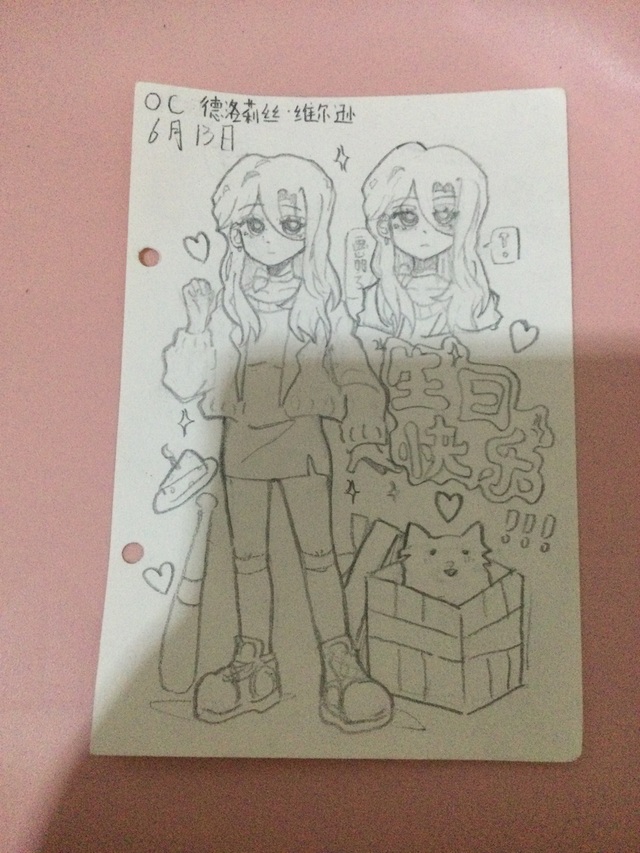 OC 德洛莉丝·维尔逊
6月13日
?!
生日
快乐
!!!